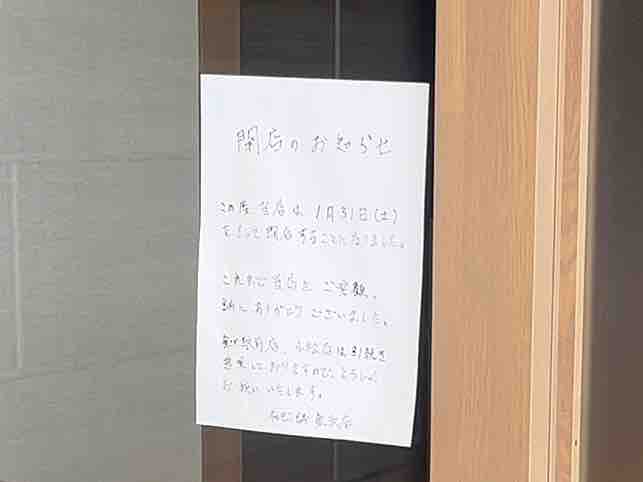 閉店のお知らせ
この度当店は1月31日(土)
をもって閉店することになりました。
これまで当店をご愛顧、
誠にありがとうございました。
駅前店、小松店は引続き
営業しておりますので、どうぞ
お願いいたします。